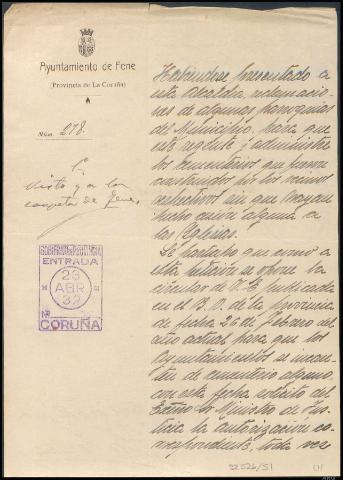 Ayuntamiento de Fene
(Provincia de La Coruña)
Núm. 278.
Visto y a la
carpeta de Fene,
GOBIERNO CIVIL
ENTRADA
23
ABR
32
Nº
CORUÑA
Habiéndose presentado a
esta Alcaldía reclamacio-
nes de algunas parroquias
del Municipio, para que
este regente y administre
los cementerios que fueron
construidos por los vecinos
respectivos sin que hayan
hecho cesión alguna a
las Iglesias.
Le participo que como a
esta petición se opone la
circular de V.E. publicada
en el B.O. de la provincia
de fecha 26 de Febrero del
año actual para que los
Ayuntamientos se incau-
ten de cementerio alguno,
con esta fecha solicito del
Excmo Sr. Ministro de Jus-
ticia la autorización co-
rrespondiente, toda vez
32526/51
(1)